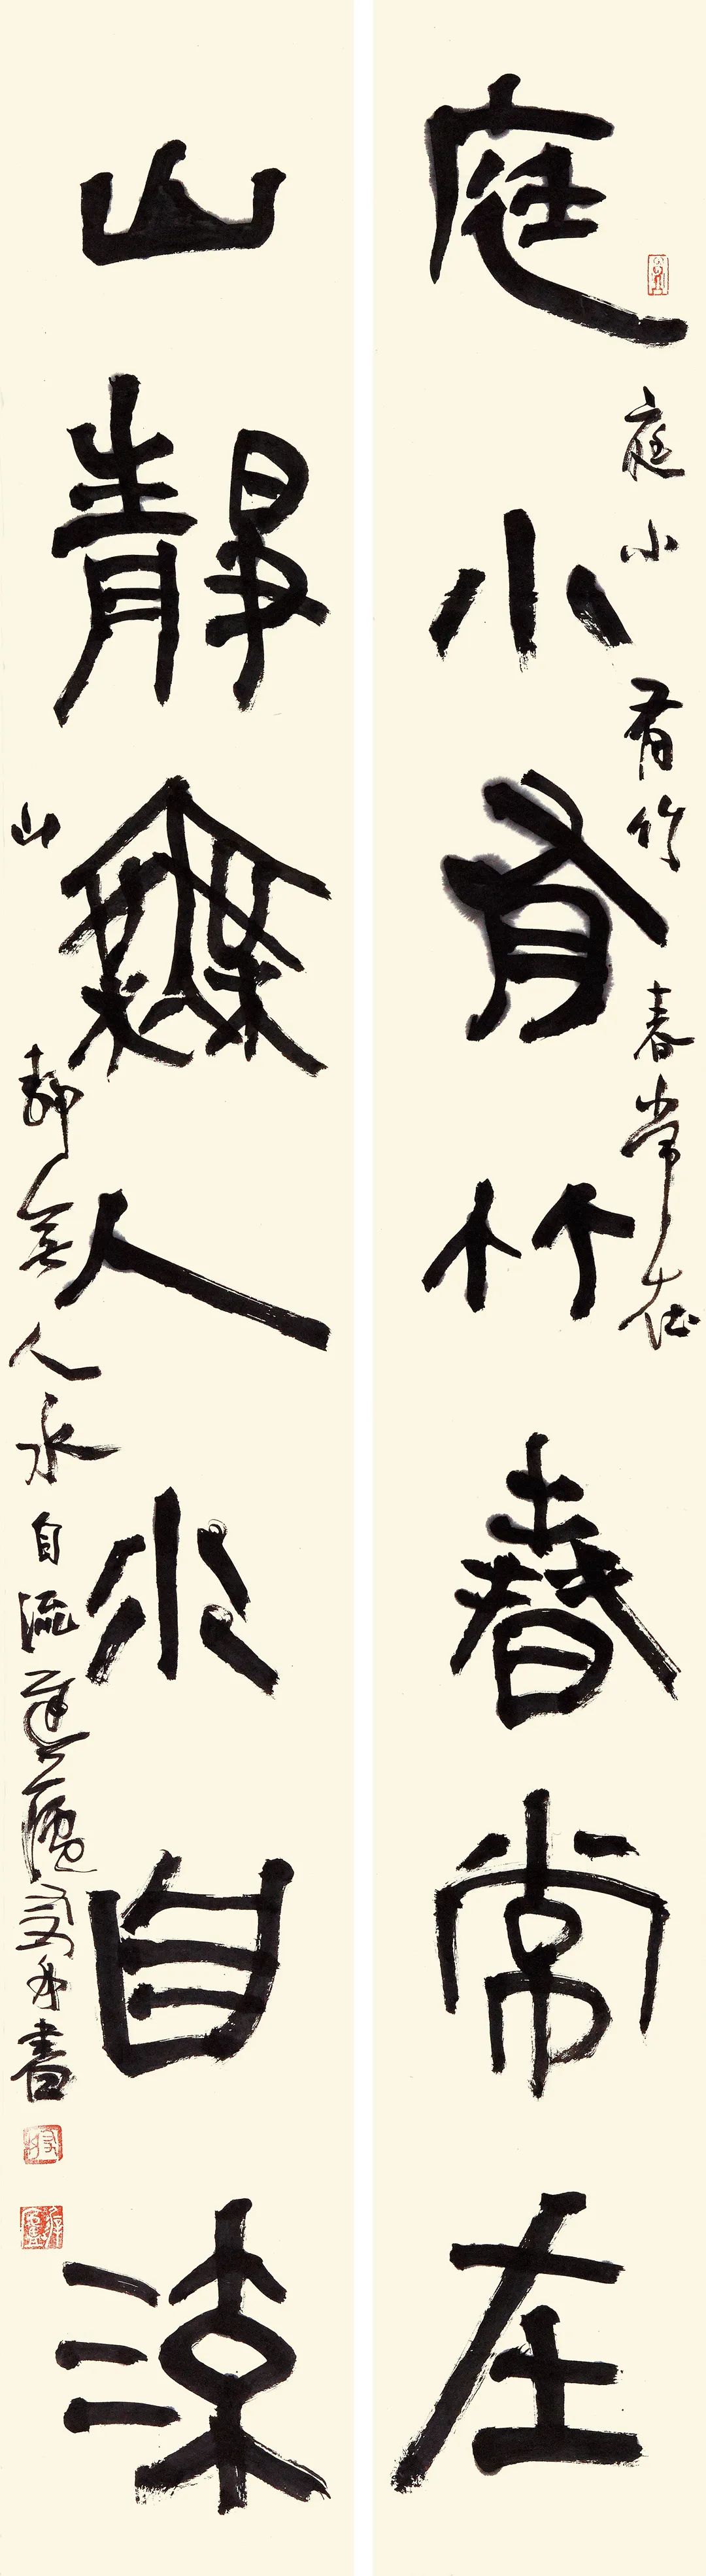 庭小有竹春常在
庭小有竹春常在
山靜無人水自流
山靜無人水自流書